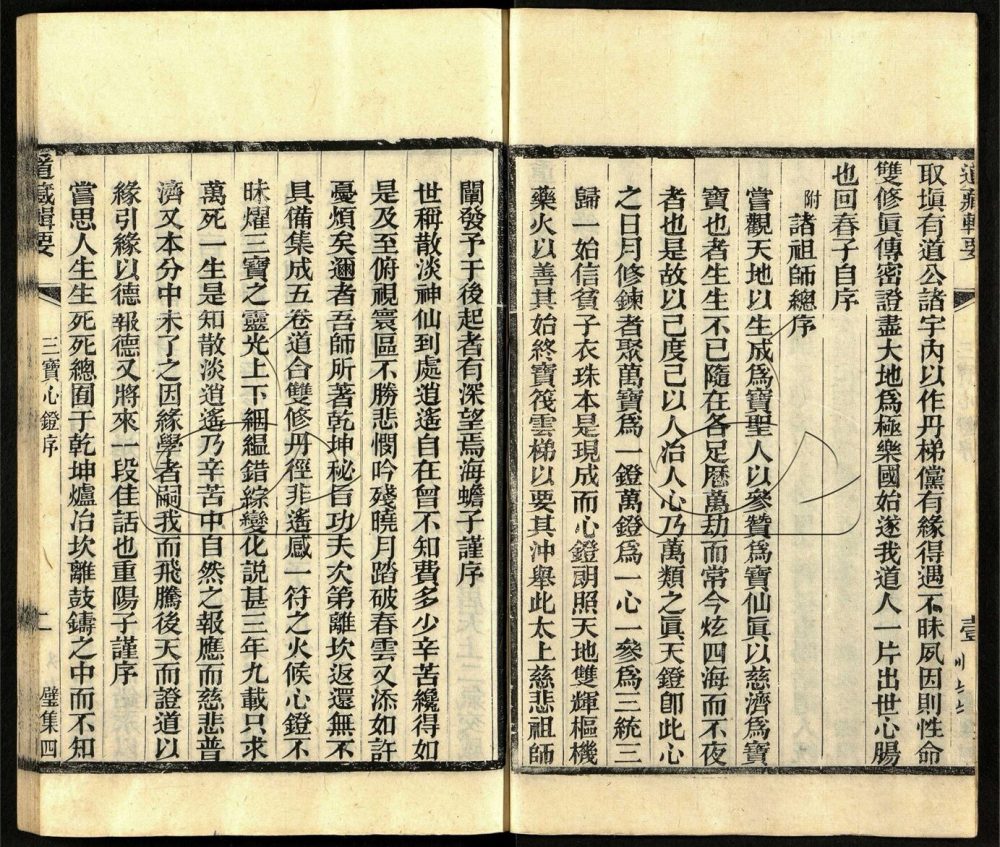 道藏輯要
取塡有道公諸宇內以作丹梯儻有緣得遇不昧夙因則性命
雙修眞傳密證盡大地爲極樂國始遂我道人一片出世心腸
也回春子自序
附 諸祖師總序
嘗觀天地以生成爲寶聖人以參贊爲寶仙眞以慈濟爲寶
寶也者生生不已隨在各足歷萬劫而常今炫四海而不夜
者也是故以己度己以人治人心乃萬類之眞天鐙卽此心
之日月修鍊者聚萬寶爲一鐙萬鐙爲一心一參爲三統三
歸一始信貧子衣珠本是現成而心鐙朗照天地雙輝樞機
藥火以善其始終寶筏雲梯以要其沖舉此太上慈悲祖師
闡發予于後起者有深望焉海蟾子謹序
世稱散淡神仙到處逍遙自在曾不知費多少辛苦纔得如
是及至俯視寰區不勝悲憫吟殘曉月踏破春雲又添如許
憂煩矣邇者吾師所著乾坤秘旨功夫次第離坎返還無不
具備集成五卷道合雙修丹徑非遙感一符之火候心鐙不
昧燿三寶之靈光上下絪縕錯綜變化說甚三年九載只求
萬死一生是知散淡逍遙乃辛苦中自然之報應而慈悲普
濟又本分中未了之因緣學者嗣我而飛騰後天而證道以
緣引緣以德報德又將來一段佳話也重陽子謹序
嘗思人生生死死總囿于乾坤爐冶坎離鼓鑄之中而不知
道藏輯要
三寶心鐙序
二
璧集四